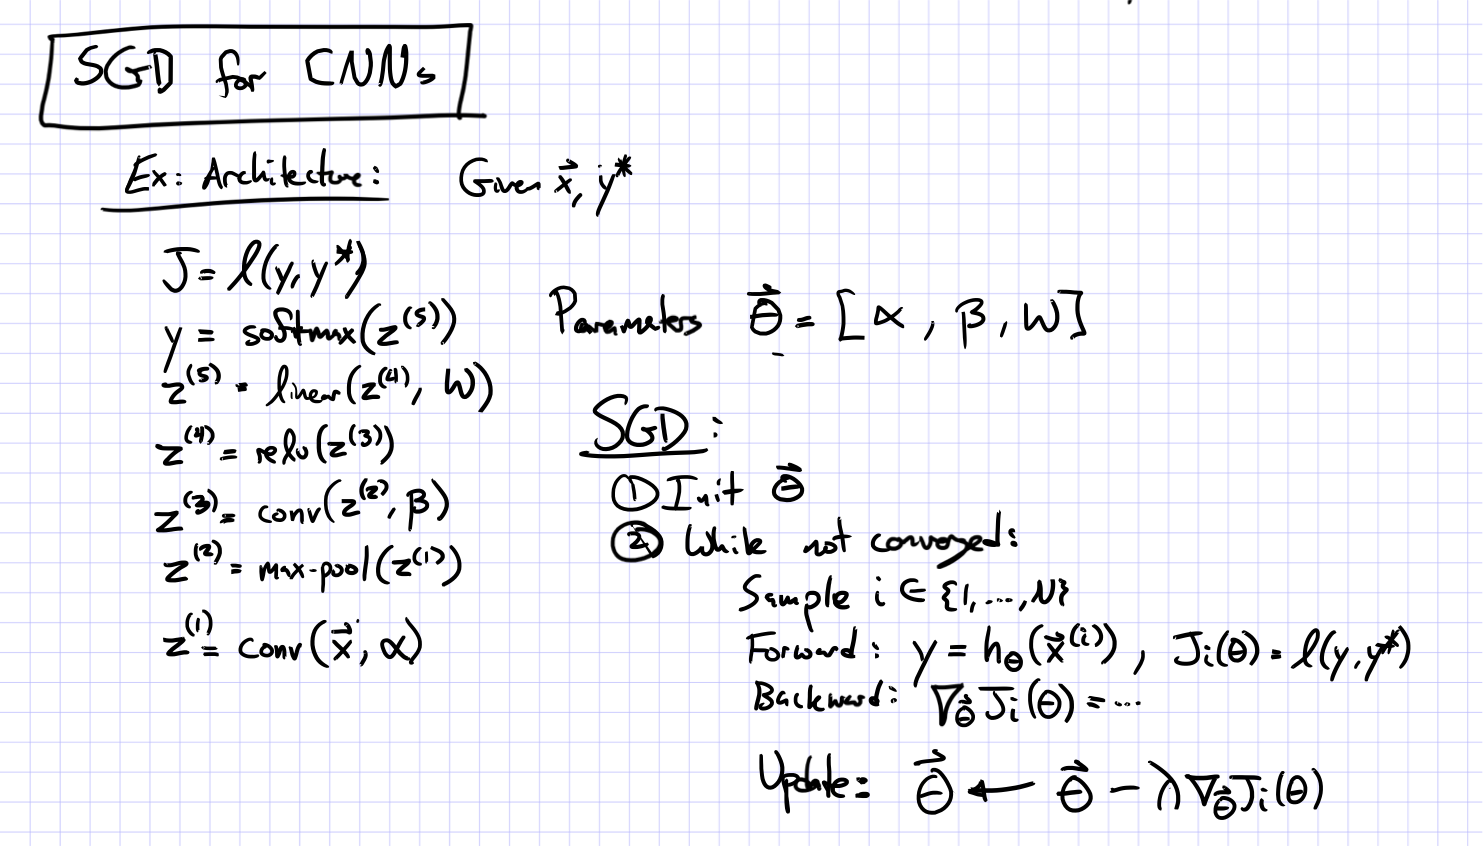 SGD for CNNs
Ex: Architecture: Given x⃗, y*
J = ℓ(y, y*)
y = softmax(z⁽⁵⁾)
z⁽⁵⁾ = linear(z⁽⁴⁾, W)
z⁽⁴⁾ = relu(z⁽³⁾)
z⁽³⁾ = conv(z⁽²⁾, β)
z⁽²⁾ = max-pool(z⁽¹⁾)
z⁽¹⁾ = conv(x⃗, α)
Parameters θ⃗ = [α, β, W]
SGD:
① Init θ⃗
② While not converged:
Sample i ∈ {1, ..., N}
Forward: y = h_θ(x⃗⁽ⁱ⁾), Jᵢ(θ) = ℓ(y, y*)
Backward: ∇_θ⃗ Jᵢ(θ) = ...
Update: θ⃗ ← θ⃗ − λ∇_θ⃗ Jᵢ(θ)